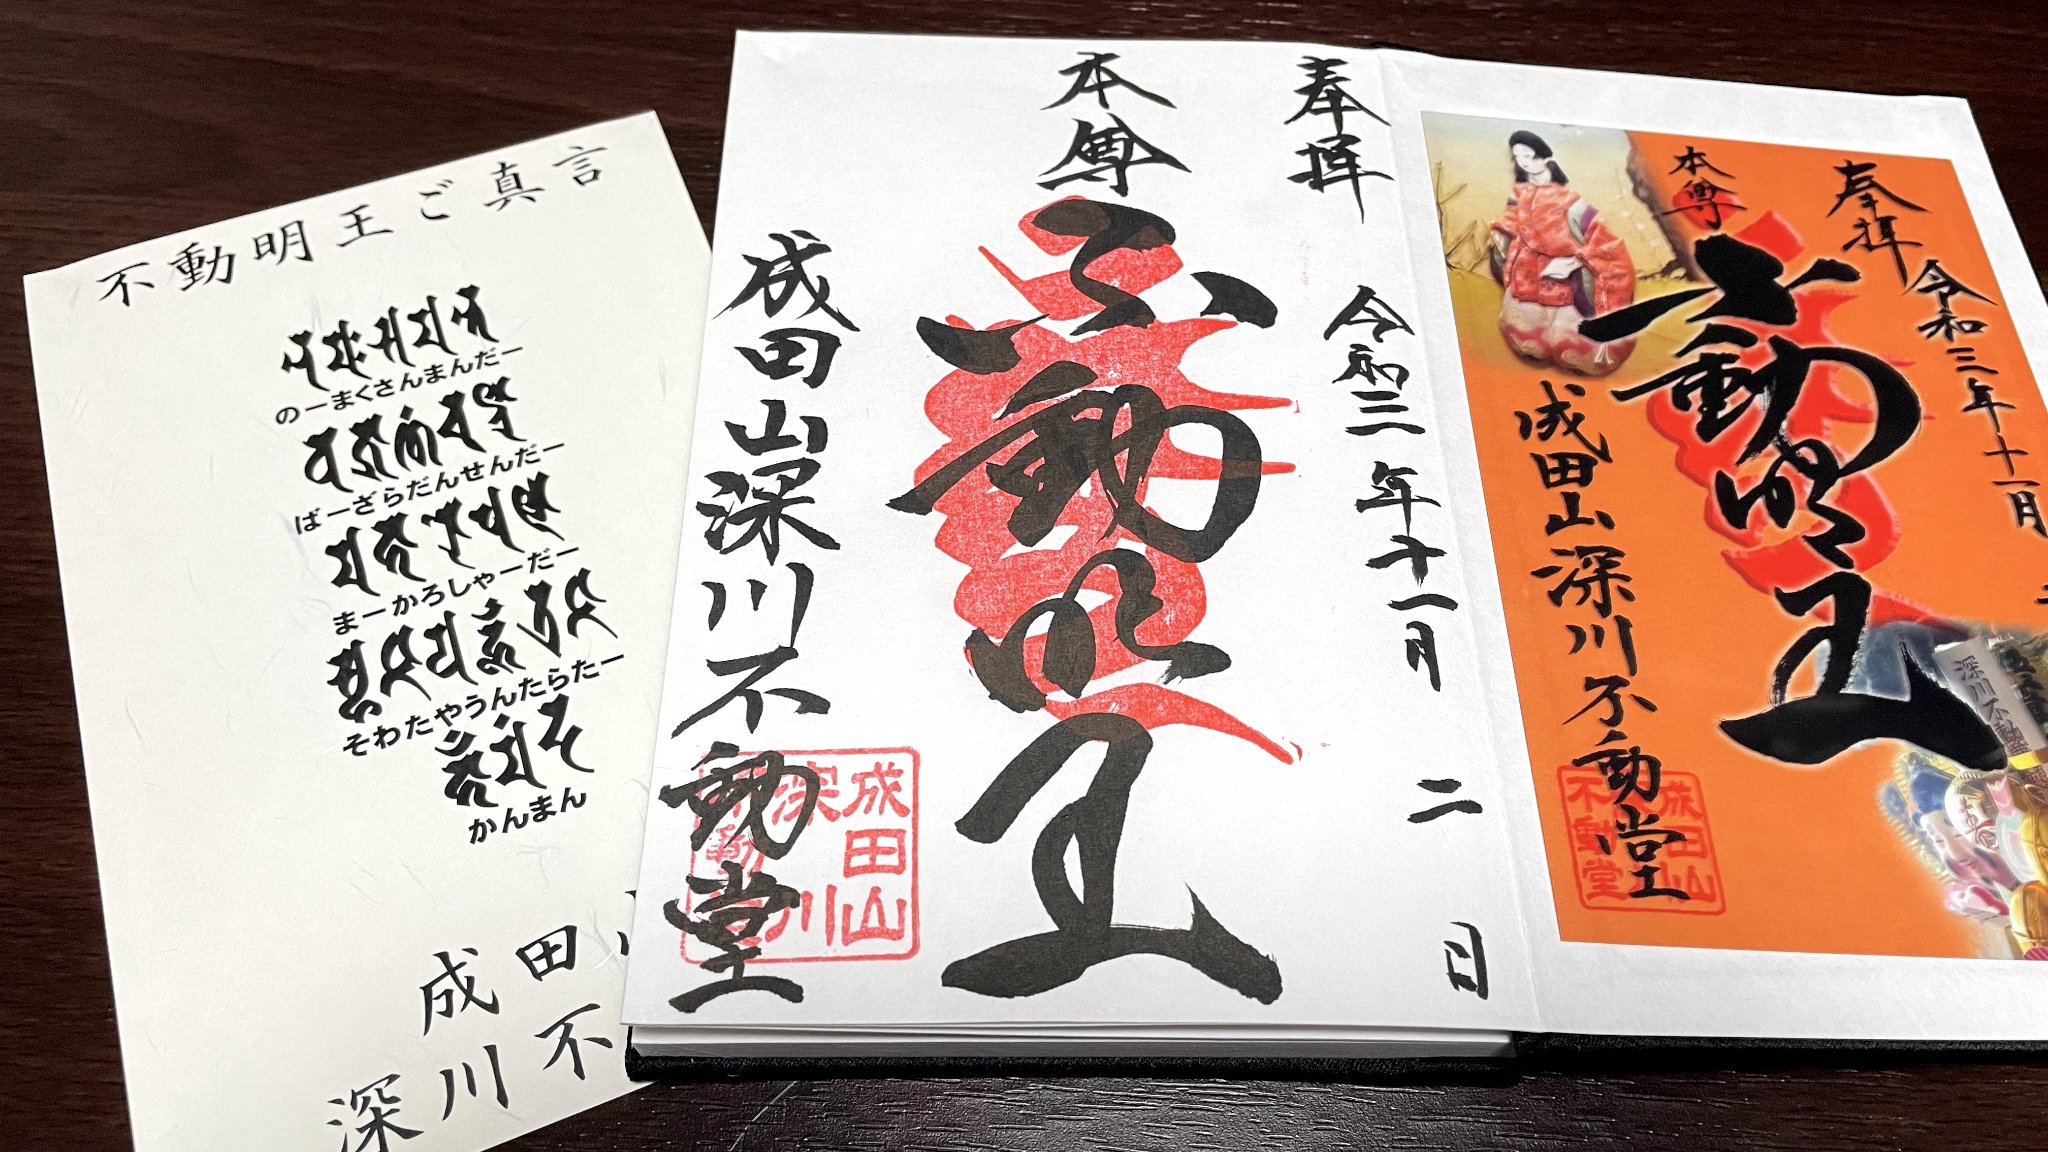 不動明王ご真言
のーまくさんまんだー
ばーざらだんせんだー
まーかろしゃーだー
そわたやうんたらたー
かんまん
成田
深川不
奉拝 令和三年十一月二日
本尊
不動明王
成田山深川不動堂
成田山
深川
不動堂
奉拝 令和三年十一月
本尊
不動明王
成田山深川不動堂
成田山
不動堂
深川不動